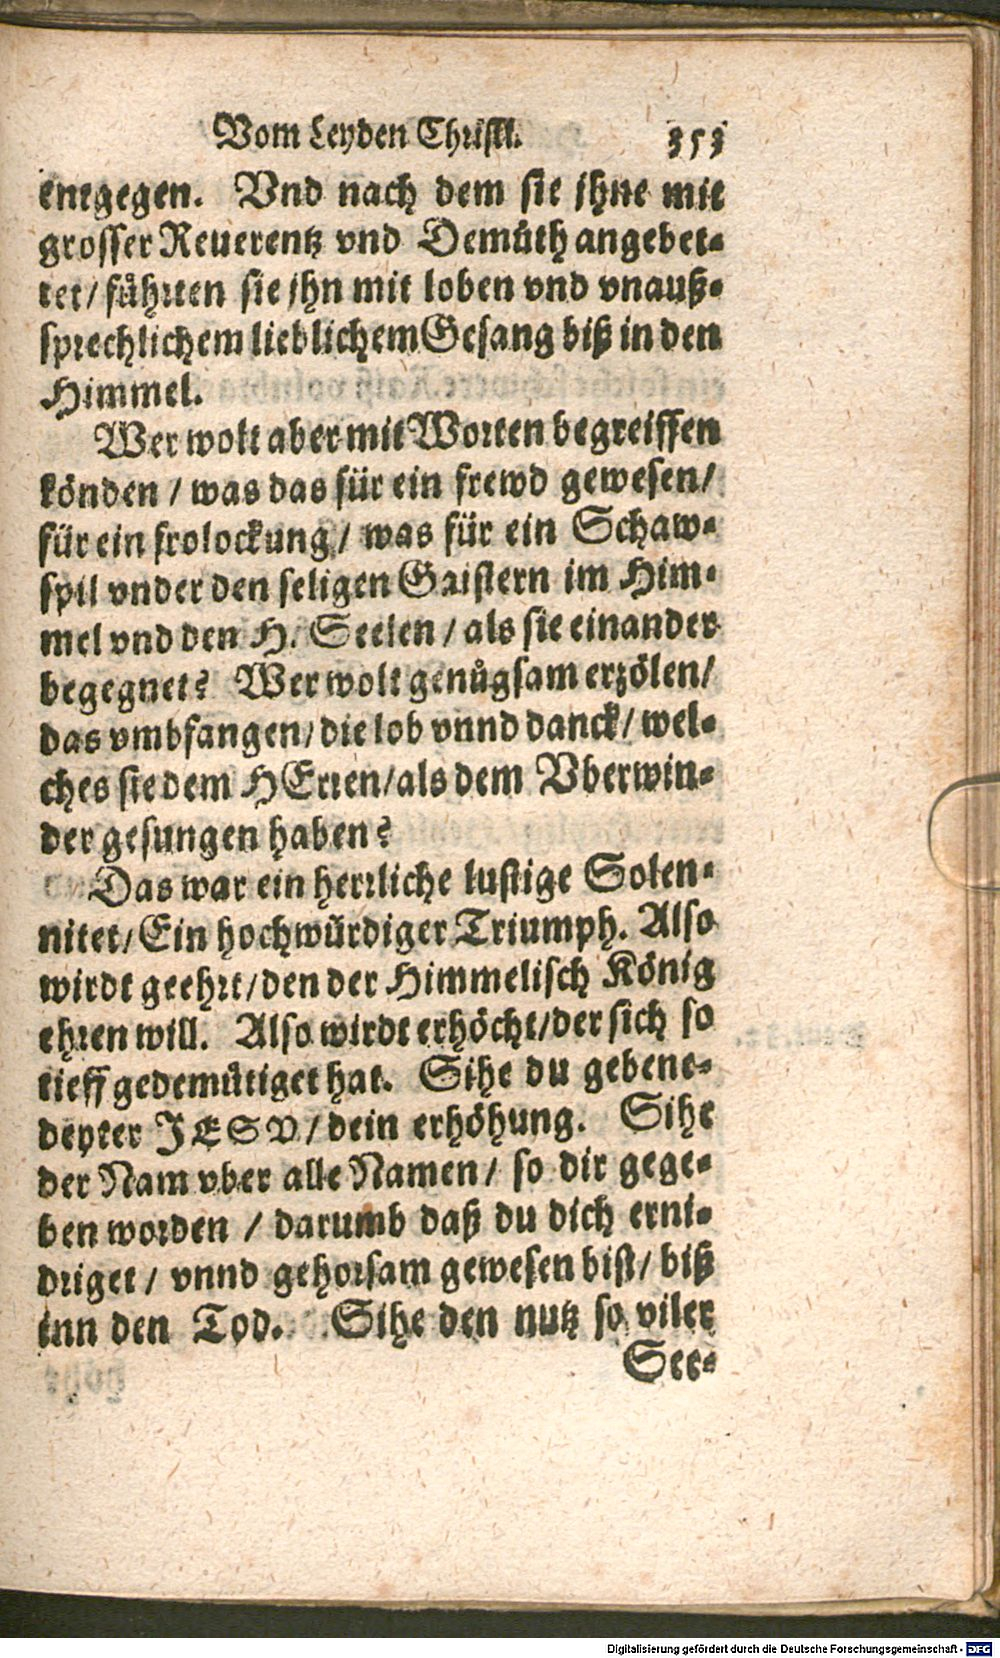 Vom Leyden Christi. 353
entgegen. Vnd nach dem sie jhne mit
grosser Reuerentz vnd Demůth angebet-
tet/ fůhrten sie jhn mit loben vnd vnauß-
sprechlichem lieblichem Gesang biß in den
Himmel.
Wer wolt aber mit Worten begreiffen
könden / was das für ein frewd gewesen/
für ein frolockung/ was für ein Schaw-
spil vnder den seligen Gaistern im Him-
mel vnd den H. Seelen / als sie einander
begegnet? Wer wolt genůgsam erzölen/
das vmbfangen/ die lob vnnd danck/ wel-
ches sie dem HErren/ als dem Vberwin-
der gesungen haben?
Das war ein herrliche lustige Solen-
nitet/ Ein hochwürdiger Triumph. Also
wirdt geehrt/ den der Himmelisch König
ehren will. Also wirdt erhöcht/ der sich so
tieff gedemůtiget hat. Sihe du gebene-
deyter JESV/ dein erhöhung. Sihe
der Nam vber alle Namen/ so dir gege-
ben worden / darumb daß du dich erni-
driget / vnnd gehorsam gewesen bist/ biß
inn den Tod. Sihe den nutz so viler
See-
Digitalisierung gefördert durch die Deutsche Forschungsgemeinschaft - DFG